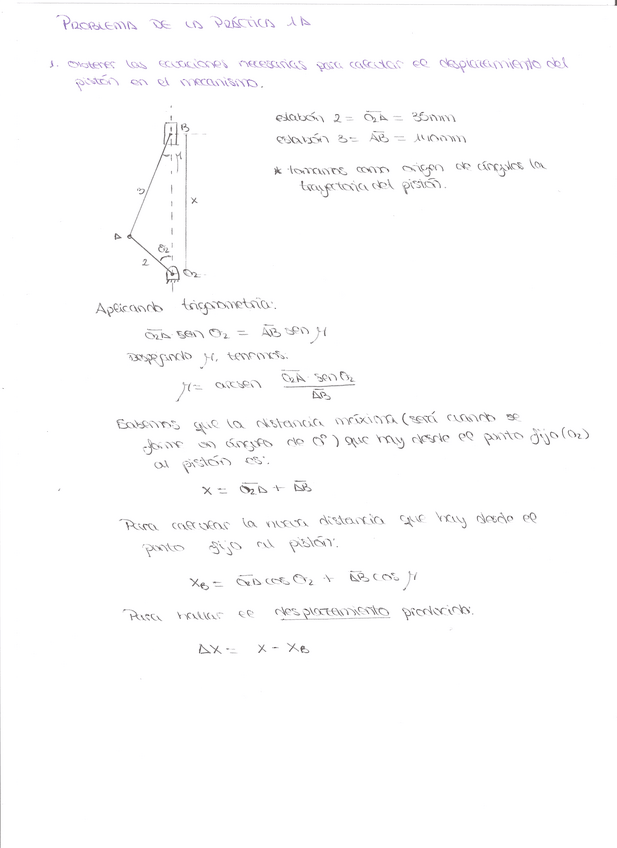 PROBLEMA DE LA PRÁCTICA 1A
1. Obtener las ecuaciones necesarias para calcular el desplazamiento del
pistón en el mecanismo.
estabón 2 = O2A = 35mm
estabón 3 = AB = 140mm
* tomamos como origen de ángulos la
trayectoria del pistón.
B
μ
3
x
A
θ2
2
O2
Aplicando trigonometría:
O2A sen θ2 = AB sen μ
Despejando μ, tenemos:
μ = arcsen O2A · senθ2 / AB
Sabemos que la distancia máxima (será cuando se
forme un ángulo de 0º) que hay desde el punto fijo (O2)
al pistón es:
x = O2A + AB
Para calcular la nueva distancia que hay desde el
punto fijo al pistón:
XB = O2A cos θ2 + AB cos μ
Para hallar el desplazamiento producido:
ΔX = X - XB